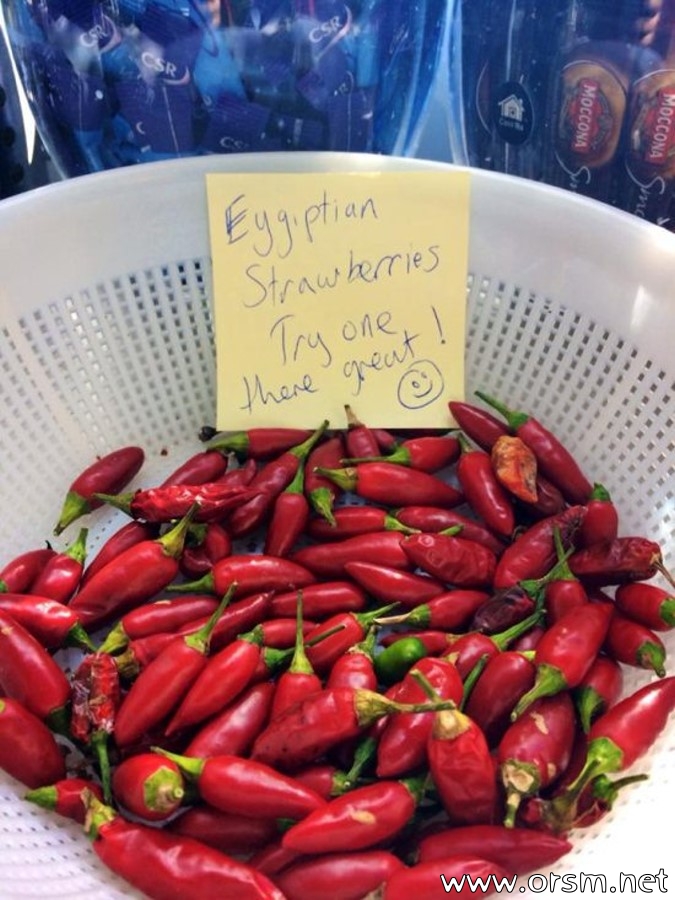 CSR
CSR
CSR
CSR
MOCCONA
MOCCONA
Eygiptian
Strawberries
Try one
there great!
www.orsm.net